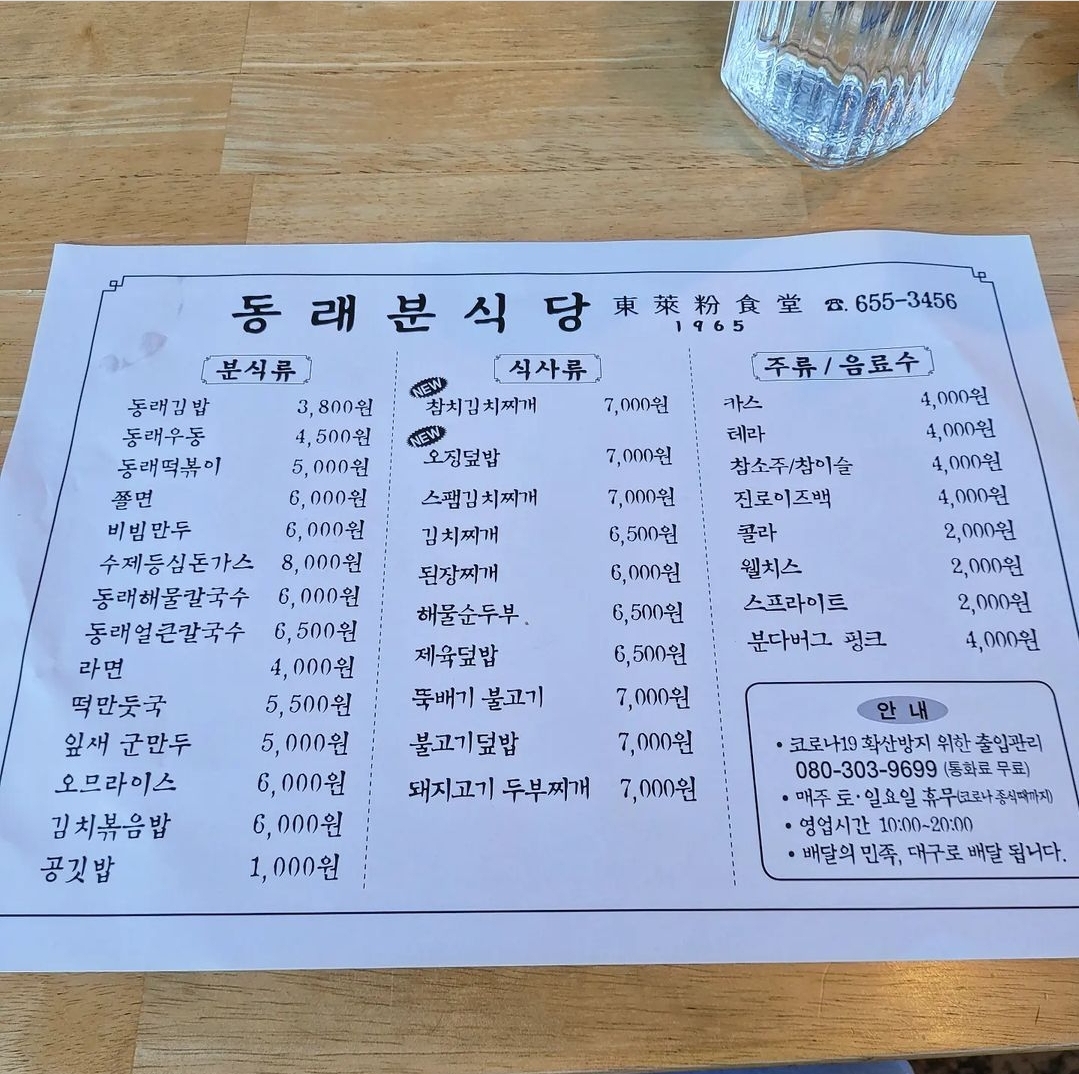 동래분식당 東萊粉食堂 ☎. 655-3456
1965
분식류
동래김밥 3,800원
동래우동 4,500원
동래떡볶이 5,000원
쫄면 6,000원
비빔만두 6,000원
수제등심돈가스 8,000원
동래해물칼국수 6,000원
동래얼큰칼국수 6,500원
라면 4,000원
떡만둣국 5,500원
잎새 군만두 5,000원
오므라이스 6,000원
김치볶음밥 6,000원
공깃밥 1,000원
식사류
NEW
참치김치찌개 7,000원
NEW
오징덮밥 7,000원
스팸김치찌개 7,000원
김치찌개 6,500원
된장찌개 6,000원
해물순두부 6,500원
제육덮밥 6,500원
뚝배기 불고기 7,000원
불고기덮밥 7,000원
돼지고기 두부찌개 7,000원
주류/음료수
카스 4,000원
테라 4,000원
참소주/참이슬 4,000원
진로이즈백 4,000원
콜라 2,000원
웰치스 2,000원
스프라이트 2,000원
분다버그 핑크 4,000원
안 내
• 코로나19 확산방지 위한 출입관리
080-303-9699 (통화료 무료)
• 매주 토·일요일 휴무(코로나 종식때까지)
• 영업시간 10:00~20:00
• 배달의 민족, 대구로 배달 됩니다.